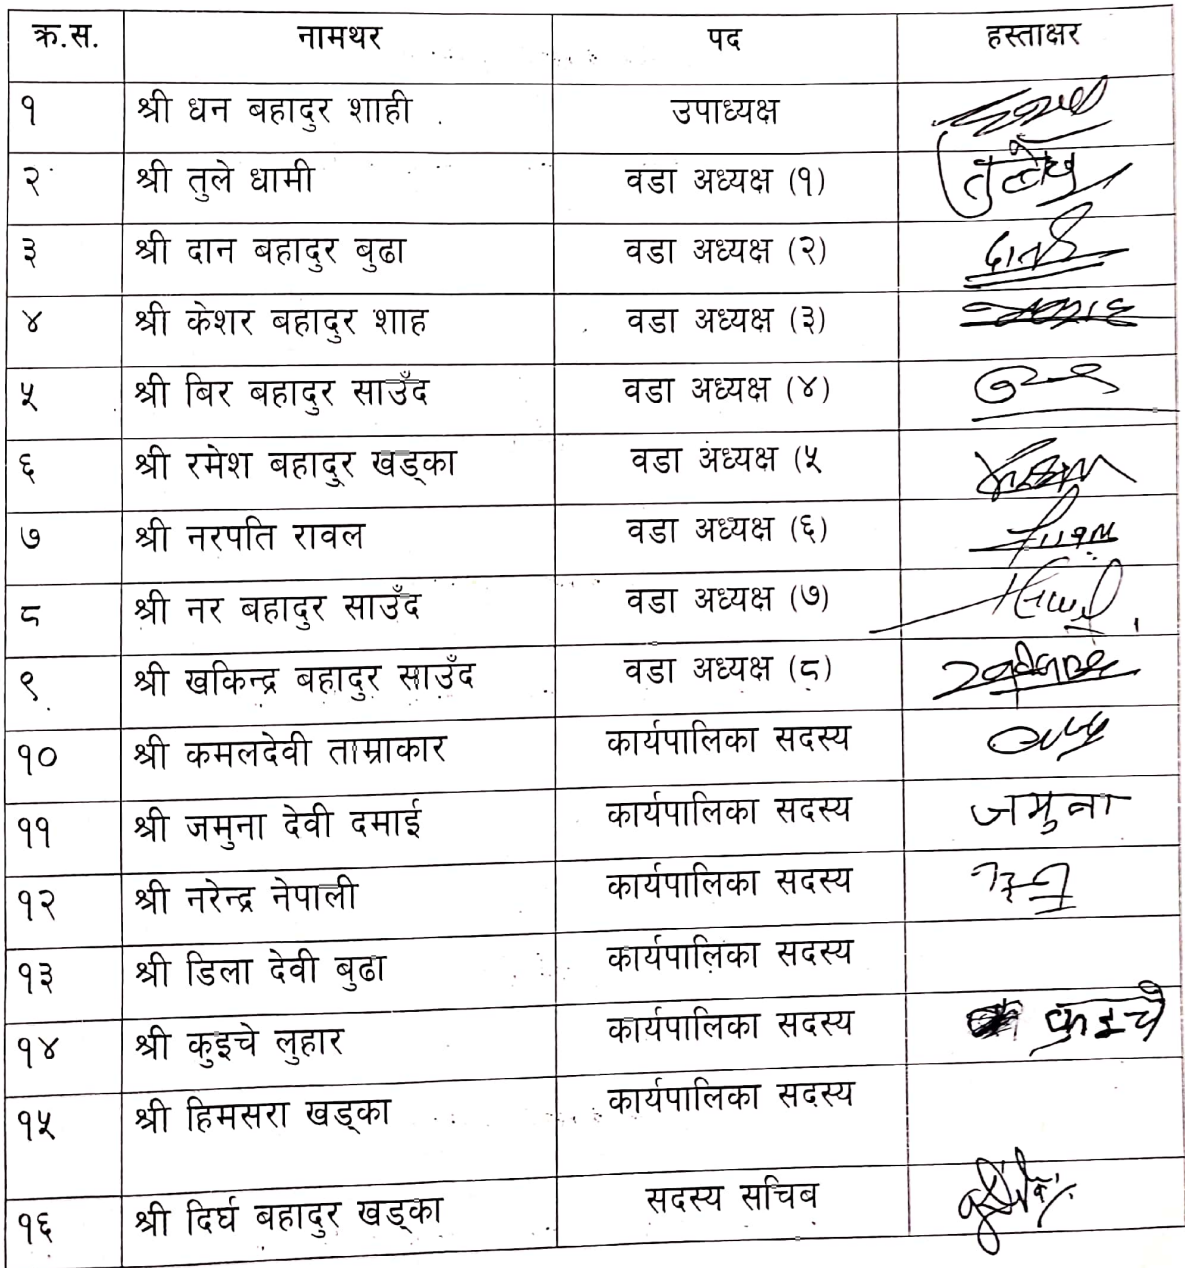 क्र.स. नामथर पद हस्ताक्षर
१ श्री धन बहादुर शाही उपाध्यक्ष
२ श्री तुले धामी वडा अध्यक्ष (१)
३ श्री दान बहादुर बुढा वडा अध्यक्ष (२)
४ श्री केशर बहादुर शाह वडा अध्यक्ष (३)
५ श्री बिर बहादुर साउँद वडा अध्यक्ष (४)
६ श्री रमेश बहादुर खड्का वडा अध्यक्ष (५
७ श्री नरपति रावल वडा अध्यक्ष (६)
८ श्री नर बहादुर साउँद वडा अध्यक्ष (७)
९ श्री खकिन्द्र बहादुर साउँद वडा अध्यक्ष (८)
१० श्री कमलदेवी ताम्राकार कार्यपालिका सदस्य
११ श्री जमुना देवी दमाई कार्यपालिका सदस्य जमुना
१२ श्री नरेन्द्र नेपाली कार्यपालिका सदस्य
१३ श्री डिला देवी बुढा कार्यपालिका सदस्य
१४ श्री कुइचे लुहार कार्यपालिका सदस्य कुइचे
१५ श्री हिमसरा खड्का कार्यपालिका सदस्य
१६ श्री दिर्घ बहादुर खड्का सदस्य सचिब